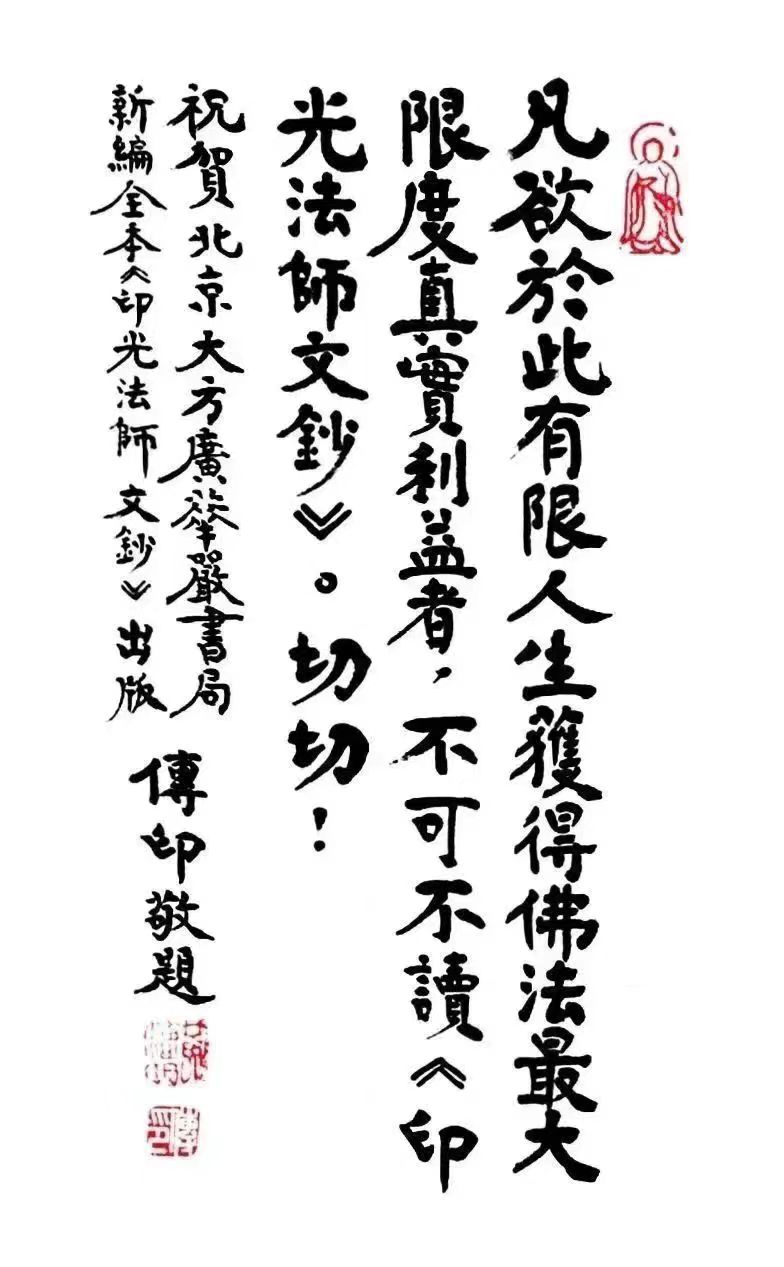 凡欲於此有限人生獲得佛法最大
限度真實利益者，不可不讀《印
光法師文鈔》。切切！
祝賀北京大方廣華嚴書局
新編全本《印光法師文鈔》出版
傳印敬題
傳印